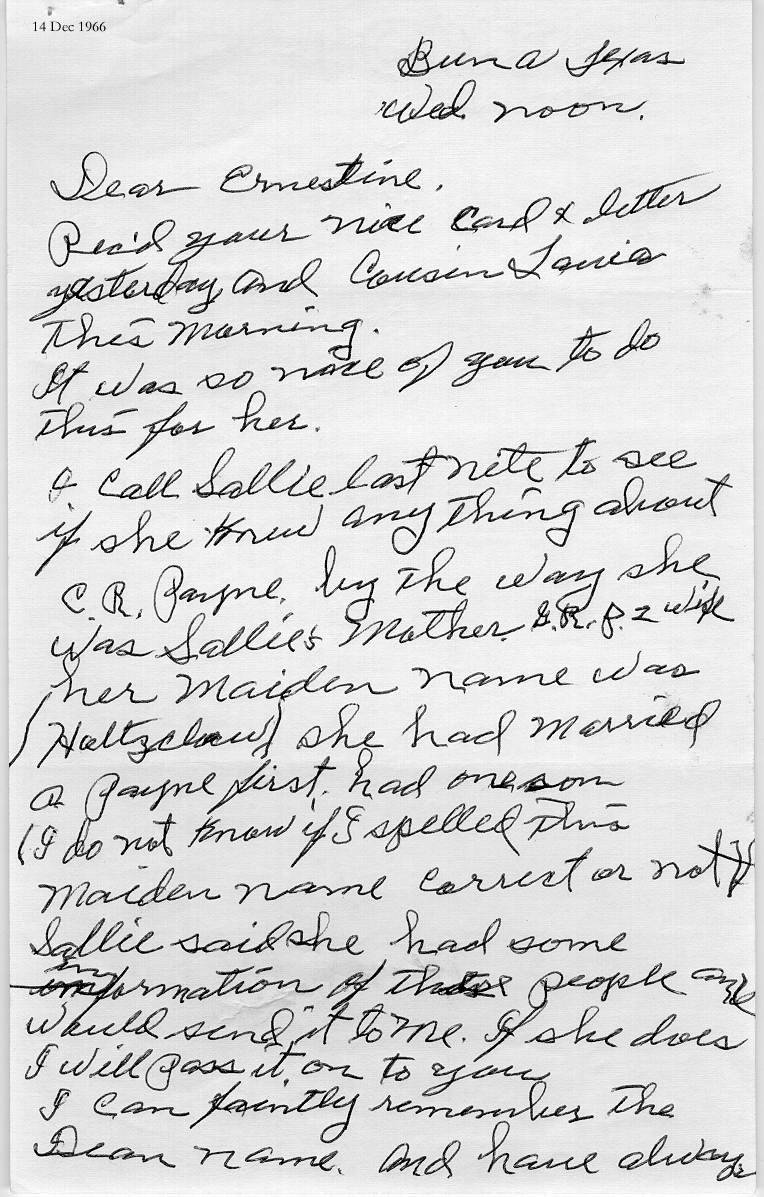 14 Dec 1966
Buna Texas
Wed. noon.
Dear Ernestine.
Rec'd your nice Card & letter
yesterday, and Cousin
This Morning.
It was so nice of you to do
this for her.
I Call Sallie last nite to see
if she Knew any thing about
C. R. Payne. by the way she
was Sallie's Mother. G.R.P. 2 wife
her Maiden name was
(Holtzclaw) she had Married
a Payne first. had one son
(I do not Know if I spelled This
Maiden name correct or not)
Sallie said she had some
information of these people and
would send it to Me. If she does
I will Pass it on to you
I Can faintly remember the
Dean name. And have always